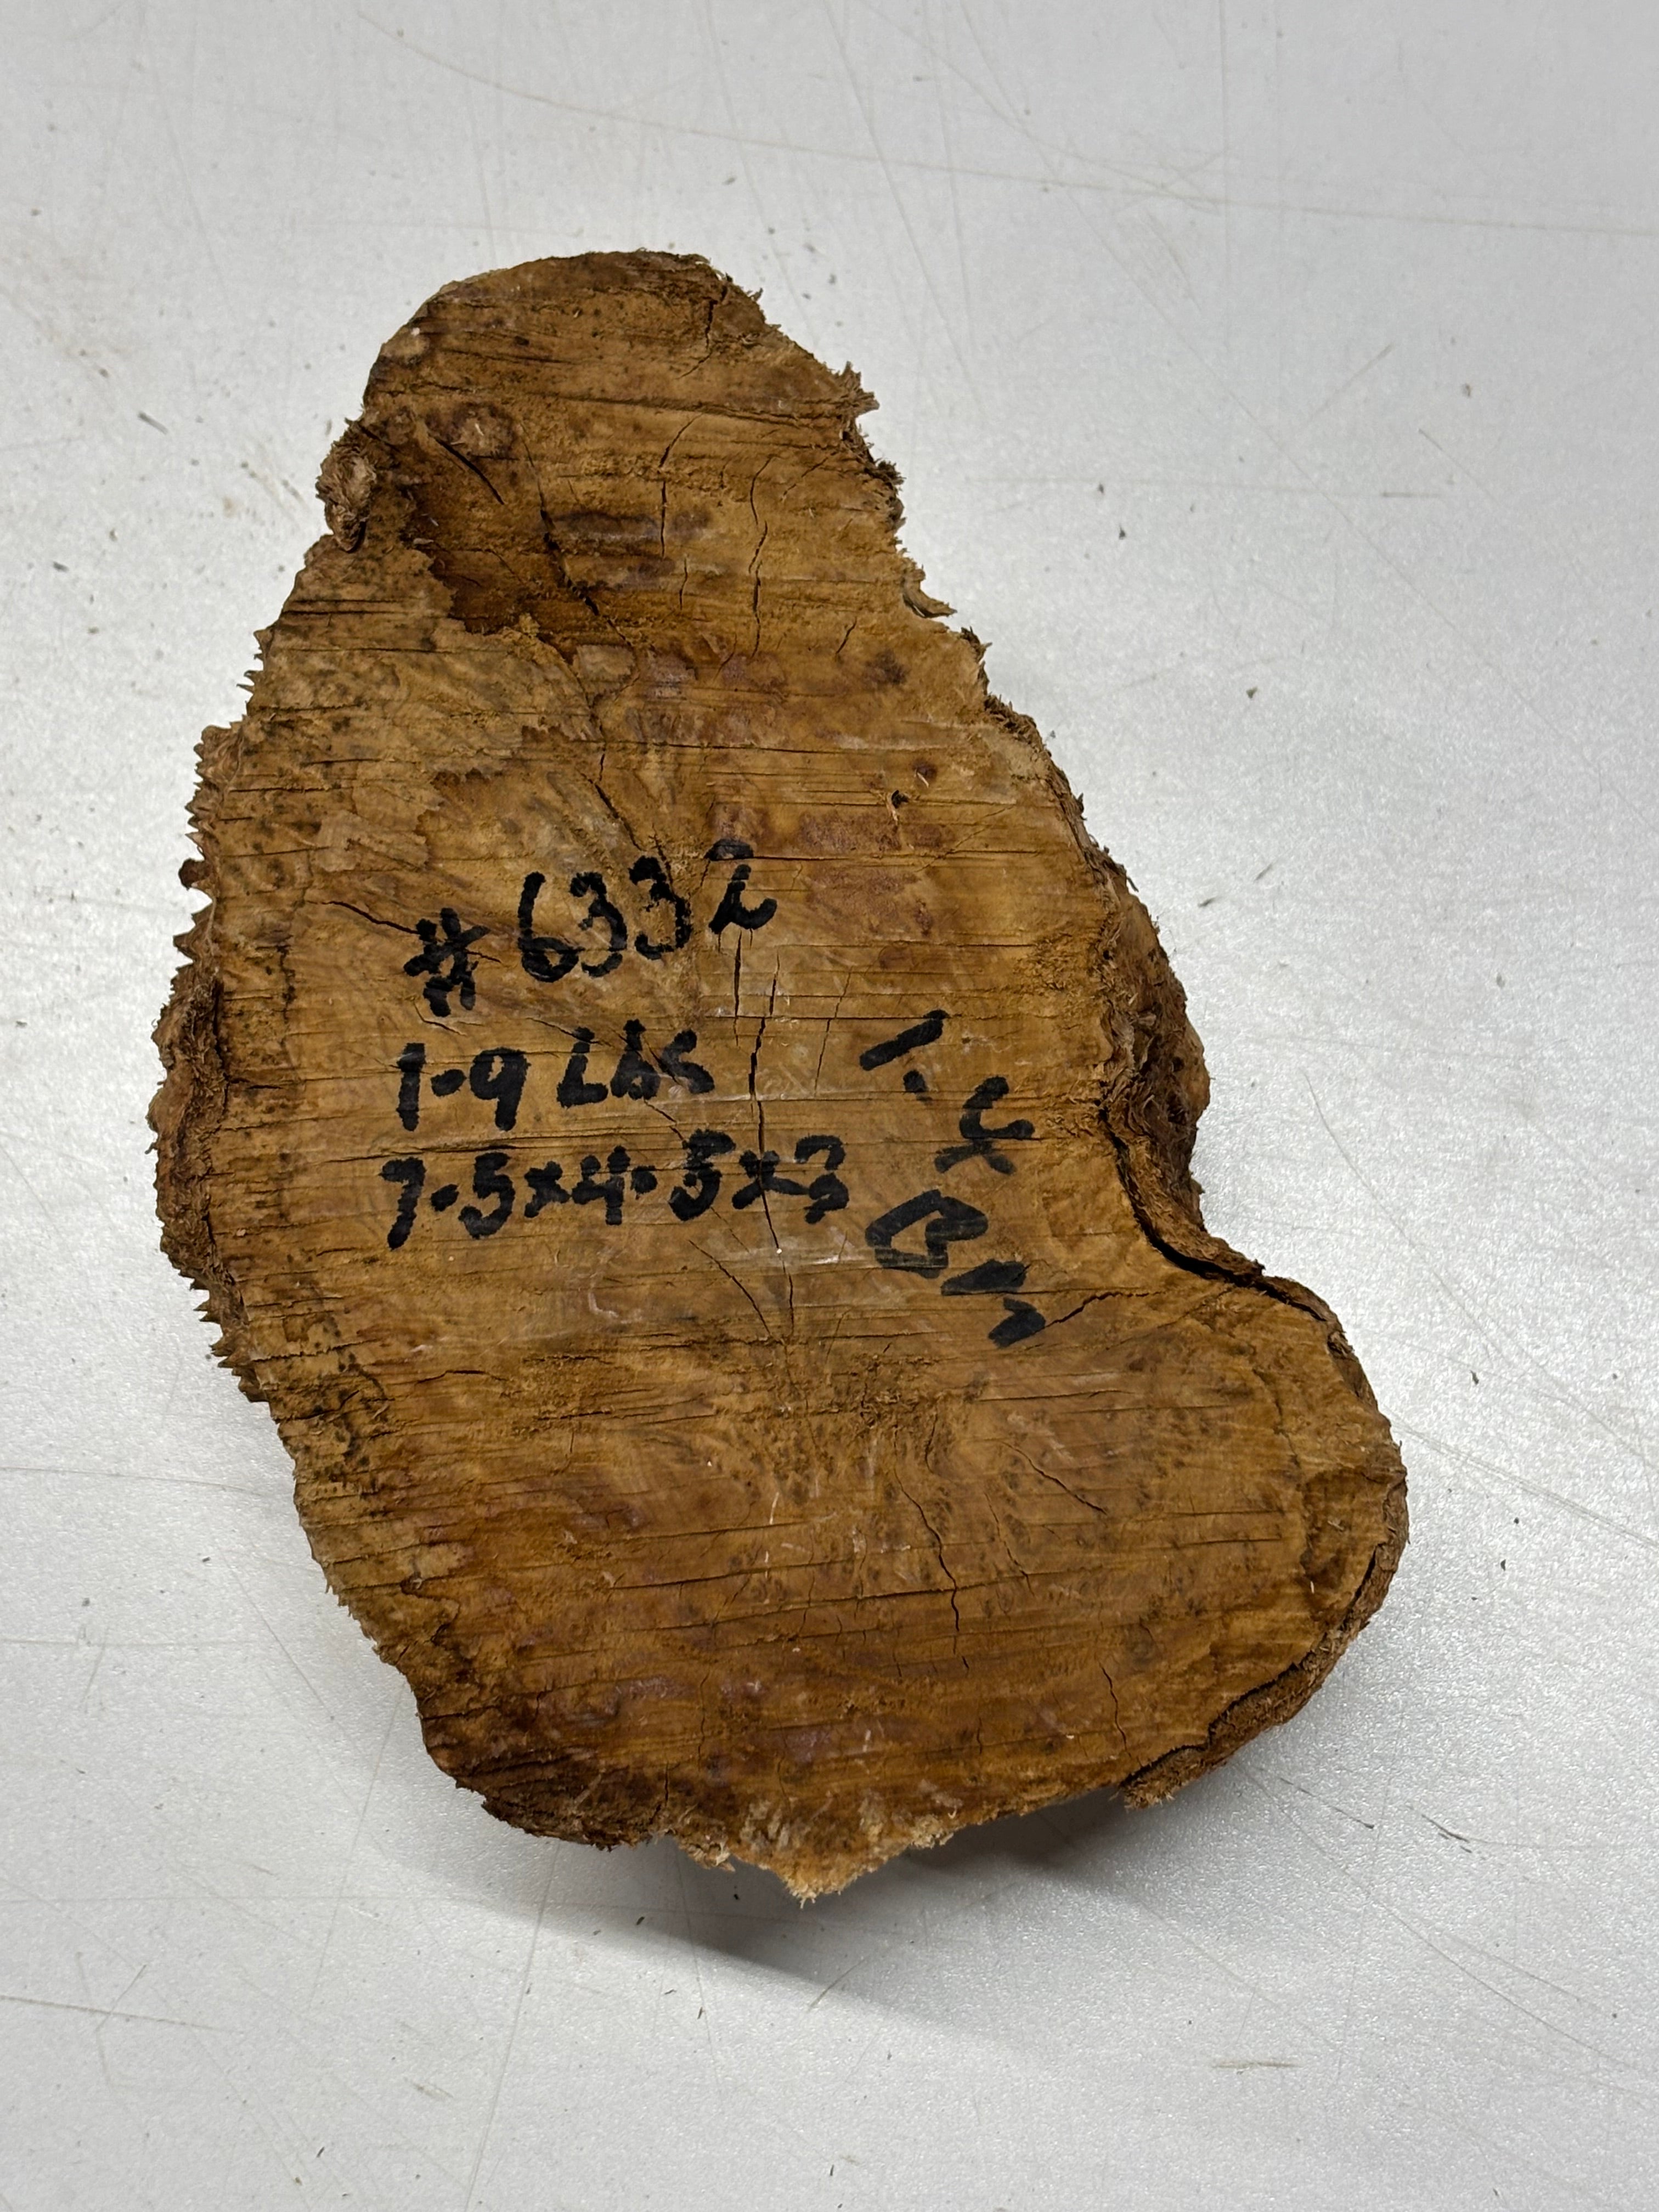 #6332
1.9 Lbs
7.5x4.5x3